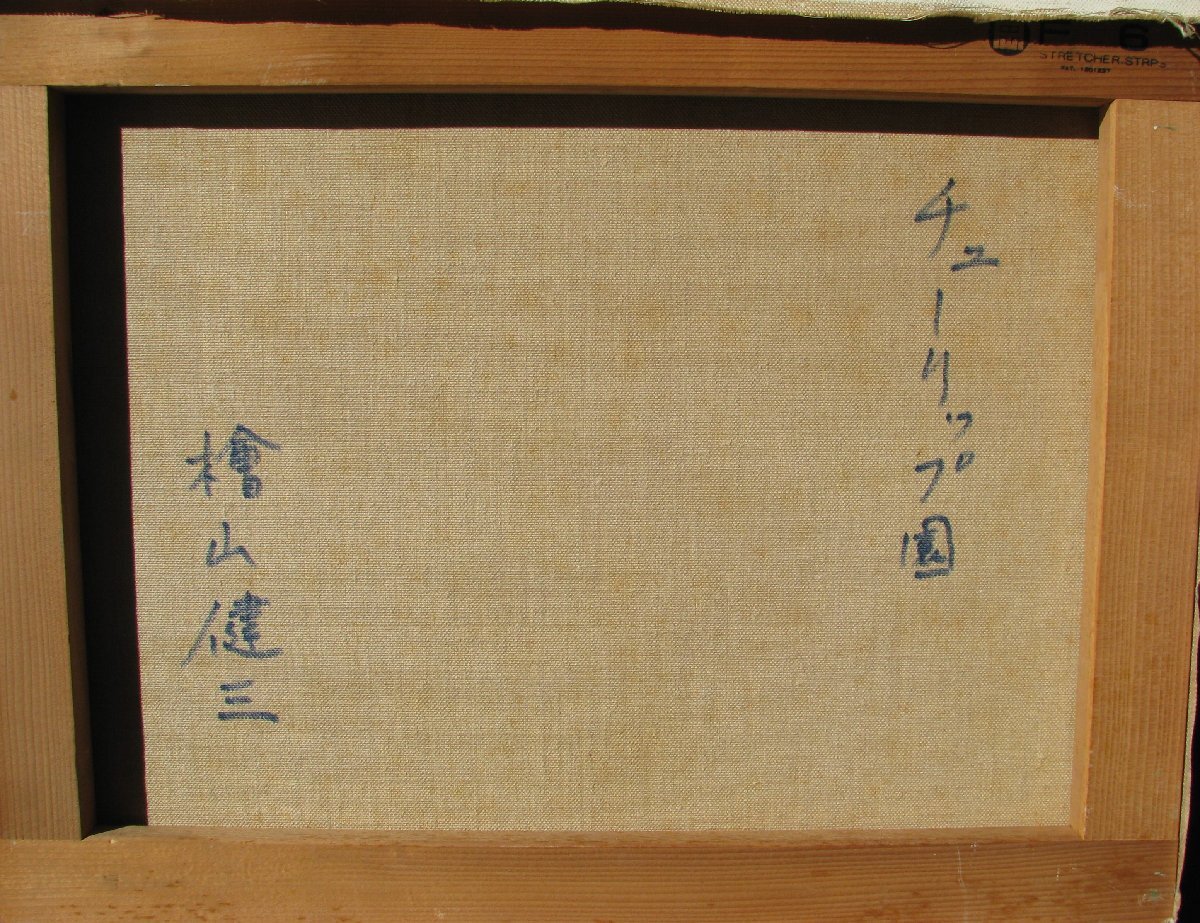 F 6
STRETCHER STRPS
PAT. 1201237
チューリップ園
檜山健三